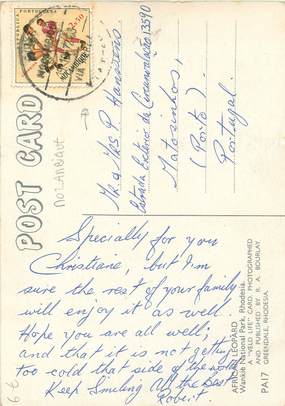 POST CARD
MOZAMBIQUE
Mr. & Mrs P. Hanssens
Estrada Exterior da Circunvalação 13590
Matosinhos,
(Porto)
Portugal.
Specially for you
Christiane, but I'm
sure the rest of your family
will enjoy it as well.
Hope you are all well;
and that it is not getting
too cold that side of the world
Keep Smiling All the Best
Robert.
AFRICAN LEOPARD
Wankie National Park, Rhodesia.
A "VELD LIFE" CARD, PHOTOGRAPHED
AND PUBLISHED BY R. A. BOURLAY
GREENDALE, RHODESIA.
PA17
6 €